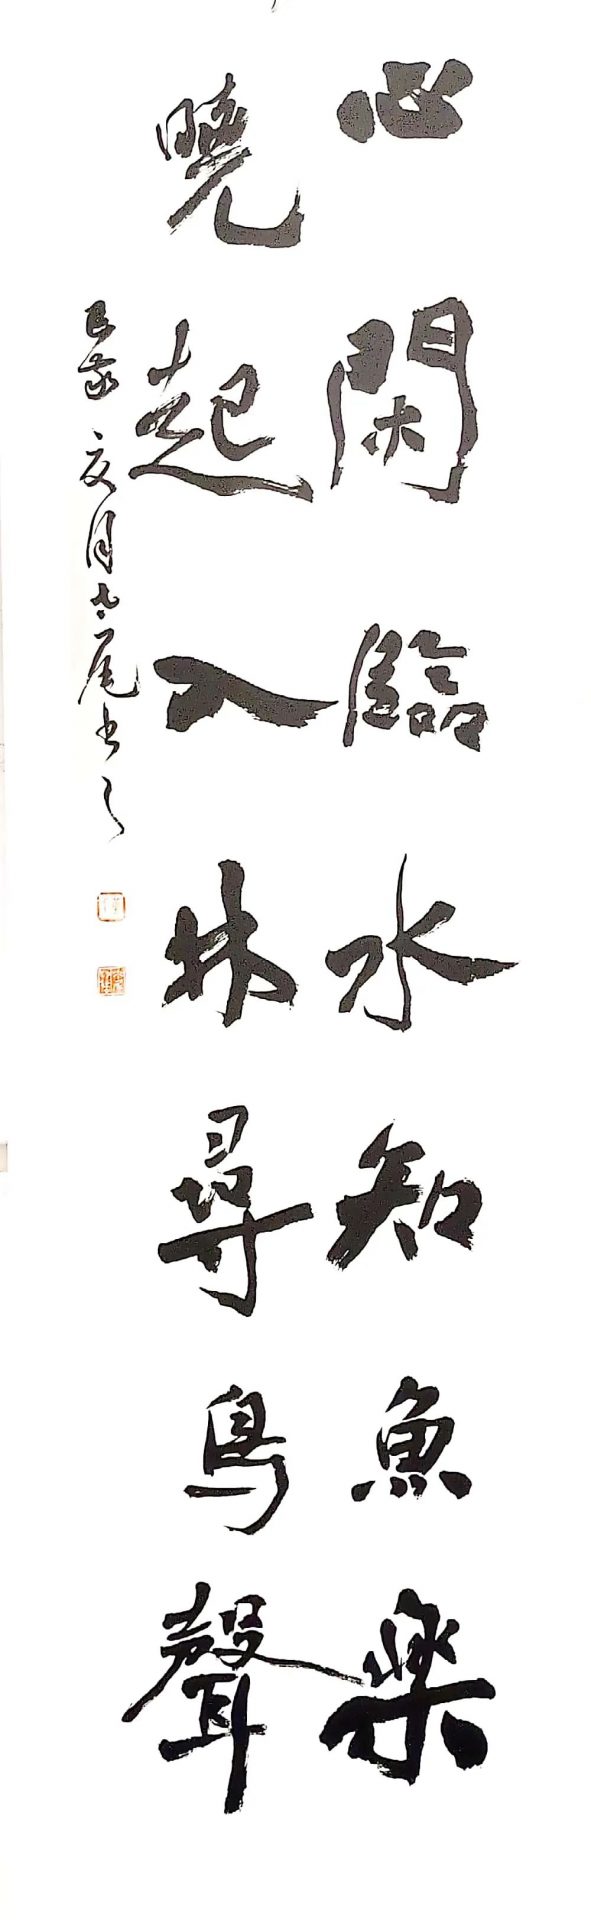 心閑臨水知魚樂
曉起入林尋鳥聲
己亥夏月九尾书之